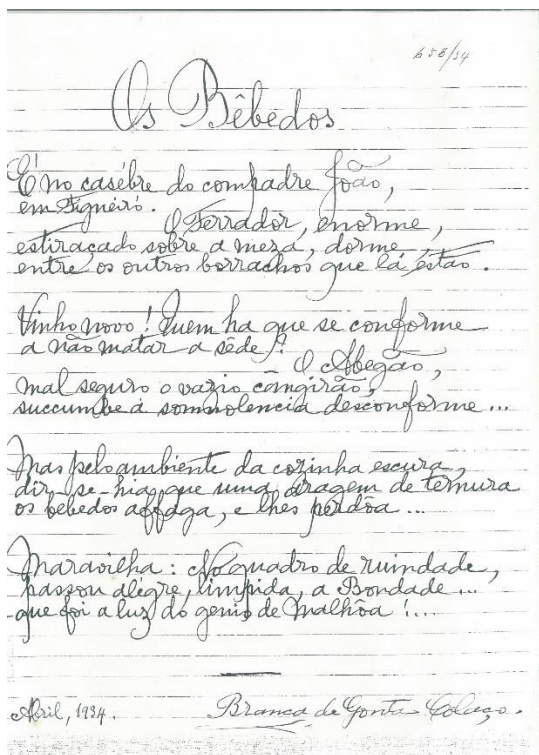 658/34
Os Bêbedos
É no casébre do compadre João,
em Figueiró.
O Ferrador, enorme,
estiraçado sobre a meza, dorme,
entre os outros borrachos que lá estão.
Vinho novo! Quem ha que se conforme
a não matar a sêde?!
O Abegão,
mal seguro o vazio cângirão,
succumbe á somnolencia desconforme...
Mas pelo ambiente da cozinha escura,
dir-se-hia que uma aragem de ternura
os bêbedos affaga, e lhes perdôa...
Maravilha: No quadro de ruindade,
passou alegre, limpida, a Bondade...
que foi a luz do genio de Malhôa!...
Abril, 1934.
Branca de Gonta Colaço.